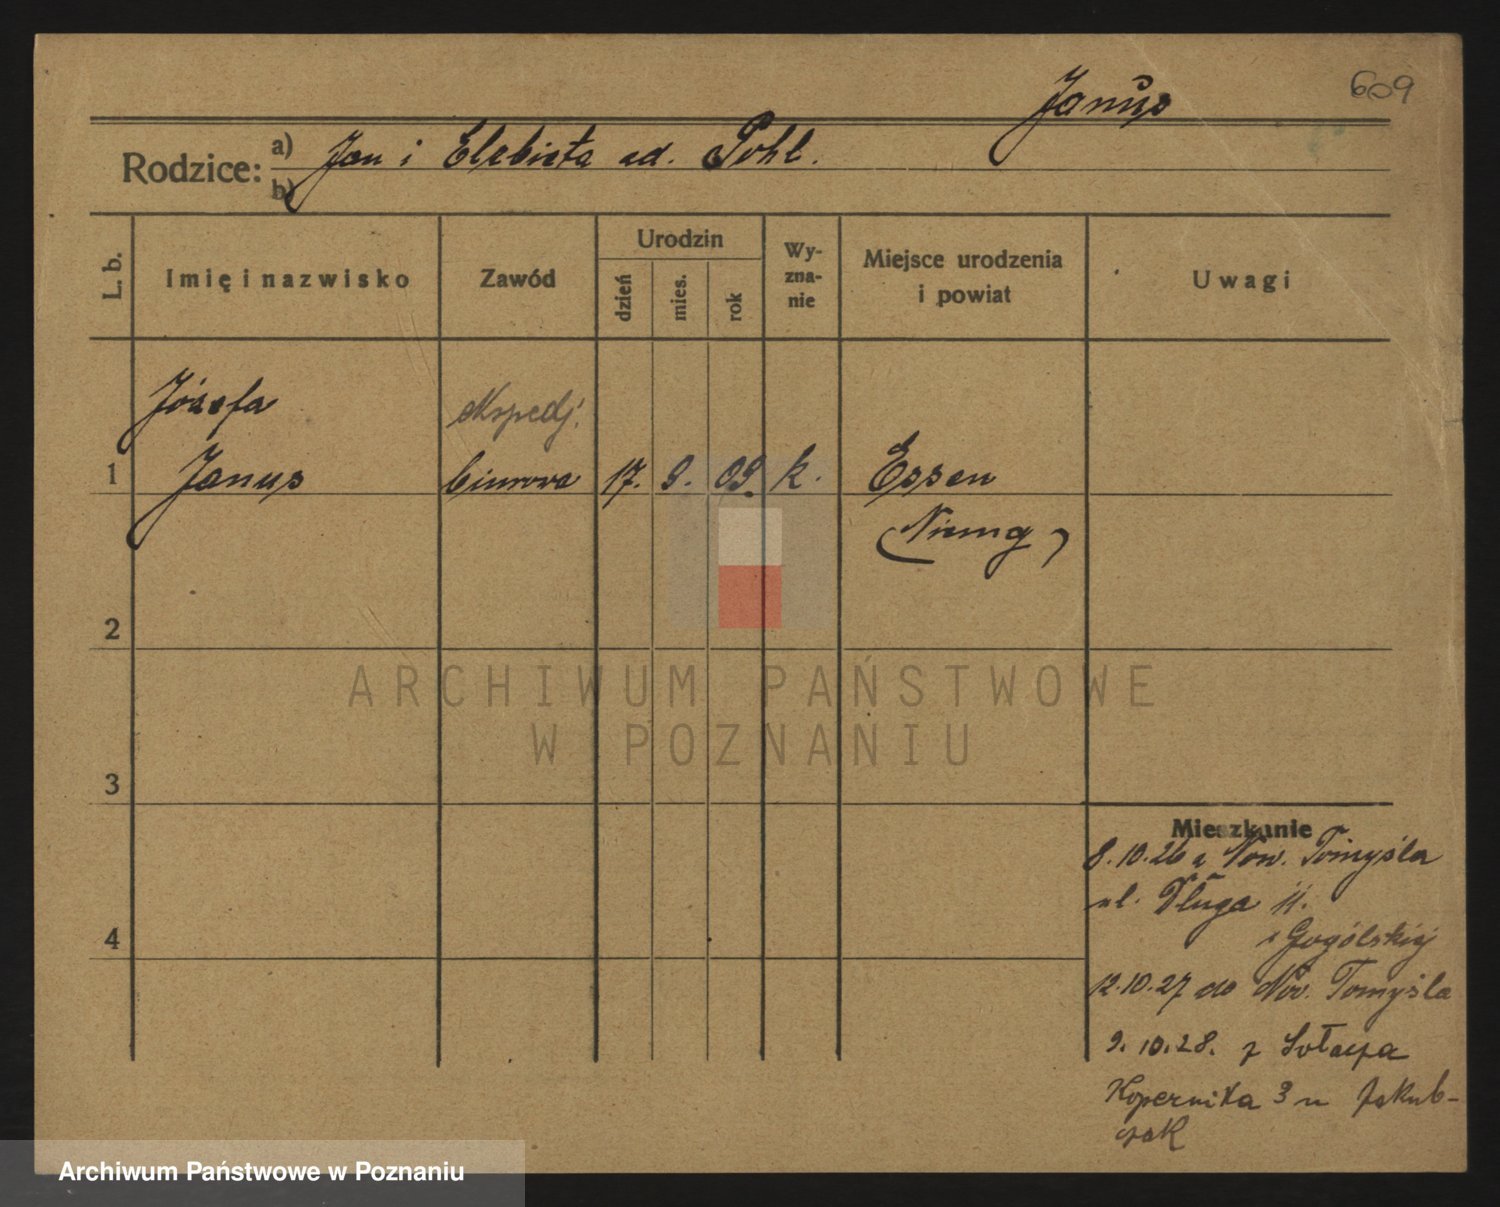 609
Janus
Rodzice: a) Jan i Elżbieta ud. Pohl.
b)
L. b.
Imię i nazwisko
Zawód
Urodzin
dzień
mies.
rok
Wy-
zna-
nie
Miejsce urodzenia
i powiat
Uwagi
Józefa ekspedj.
1 Janus biurowa 17. 9. 09. k. Essen
(Niemcy)
2
3
4
ARCHIWUM PAŃSTWOWE
W POZNANIU
Mieszkanie
8.10.26 z Now. Tomyśla
ul. Długa 11.
Gogólskiej
12.10.27 do Now. Tomyśla
9.10.28. z Sołacza
Kopernika 3 u Jakub-
czak
Archiwum Państwowe w Poznaniu